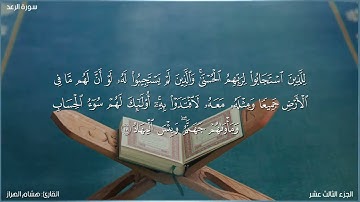 سورة الرعد
لِلَّذِينَ ٱسْتَجَابُوا۟ لِرَبِّهِمُ ٱلْحُسْنَىٰ ۚ وَٱلَّذِينَ لَمْ يَسْتَجِيبُوا۟ لَهُۥ لَوْ أَنَّ لَهُم مَّا فِى
ٱلْأَرْضِ جَمِيعًا وَمِثْلَهُۥ مَعَهُۥ لَٱفْتَدَوْا۟ بِهِۦٓ ۚ أُو۟لَـٰٓئِكَ لَهُمْ سُوٓءُ ٱلْحِسَابِ
وَمَأْوَىٰهُمْ جَهَنَّمُ ۖ وَبِئْسَ ٱلْمِهَادُ
الجزء الثالث عشر
القارئ: هشام الهراز